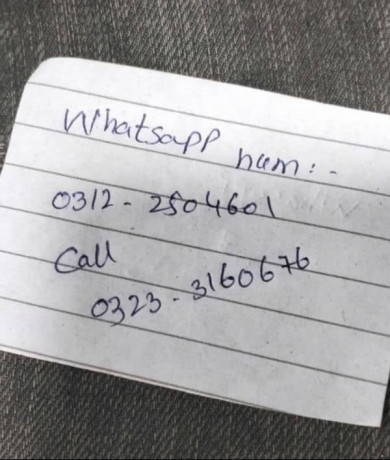 Whatsapp num:-
0312-2504601
Call
0323-3160676